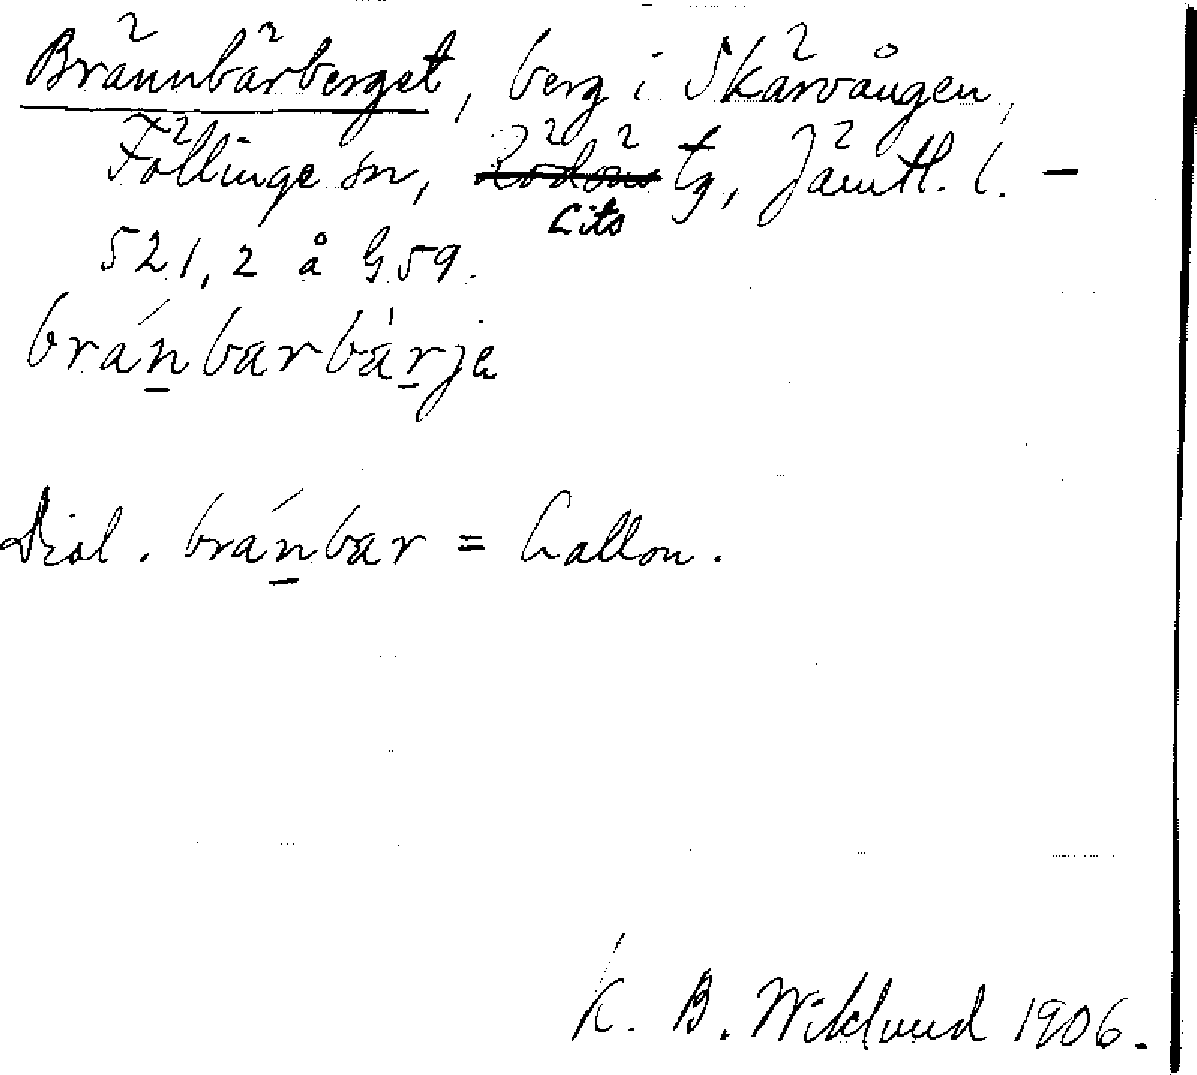 Brännbärberget, berg i Skärvången,
Föllinge sn, Rödöns tg, Jämtl. l. –
Lits
521,2 å G59.
bránbarbàrja
Dial. bránbar = hallon.
K. B. Wiklund 1906.